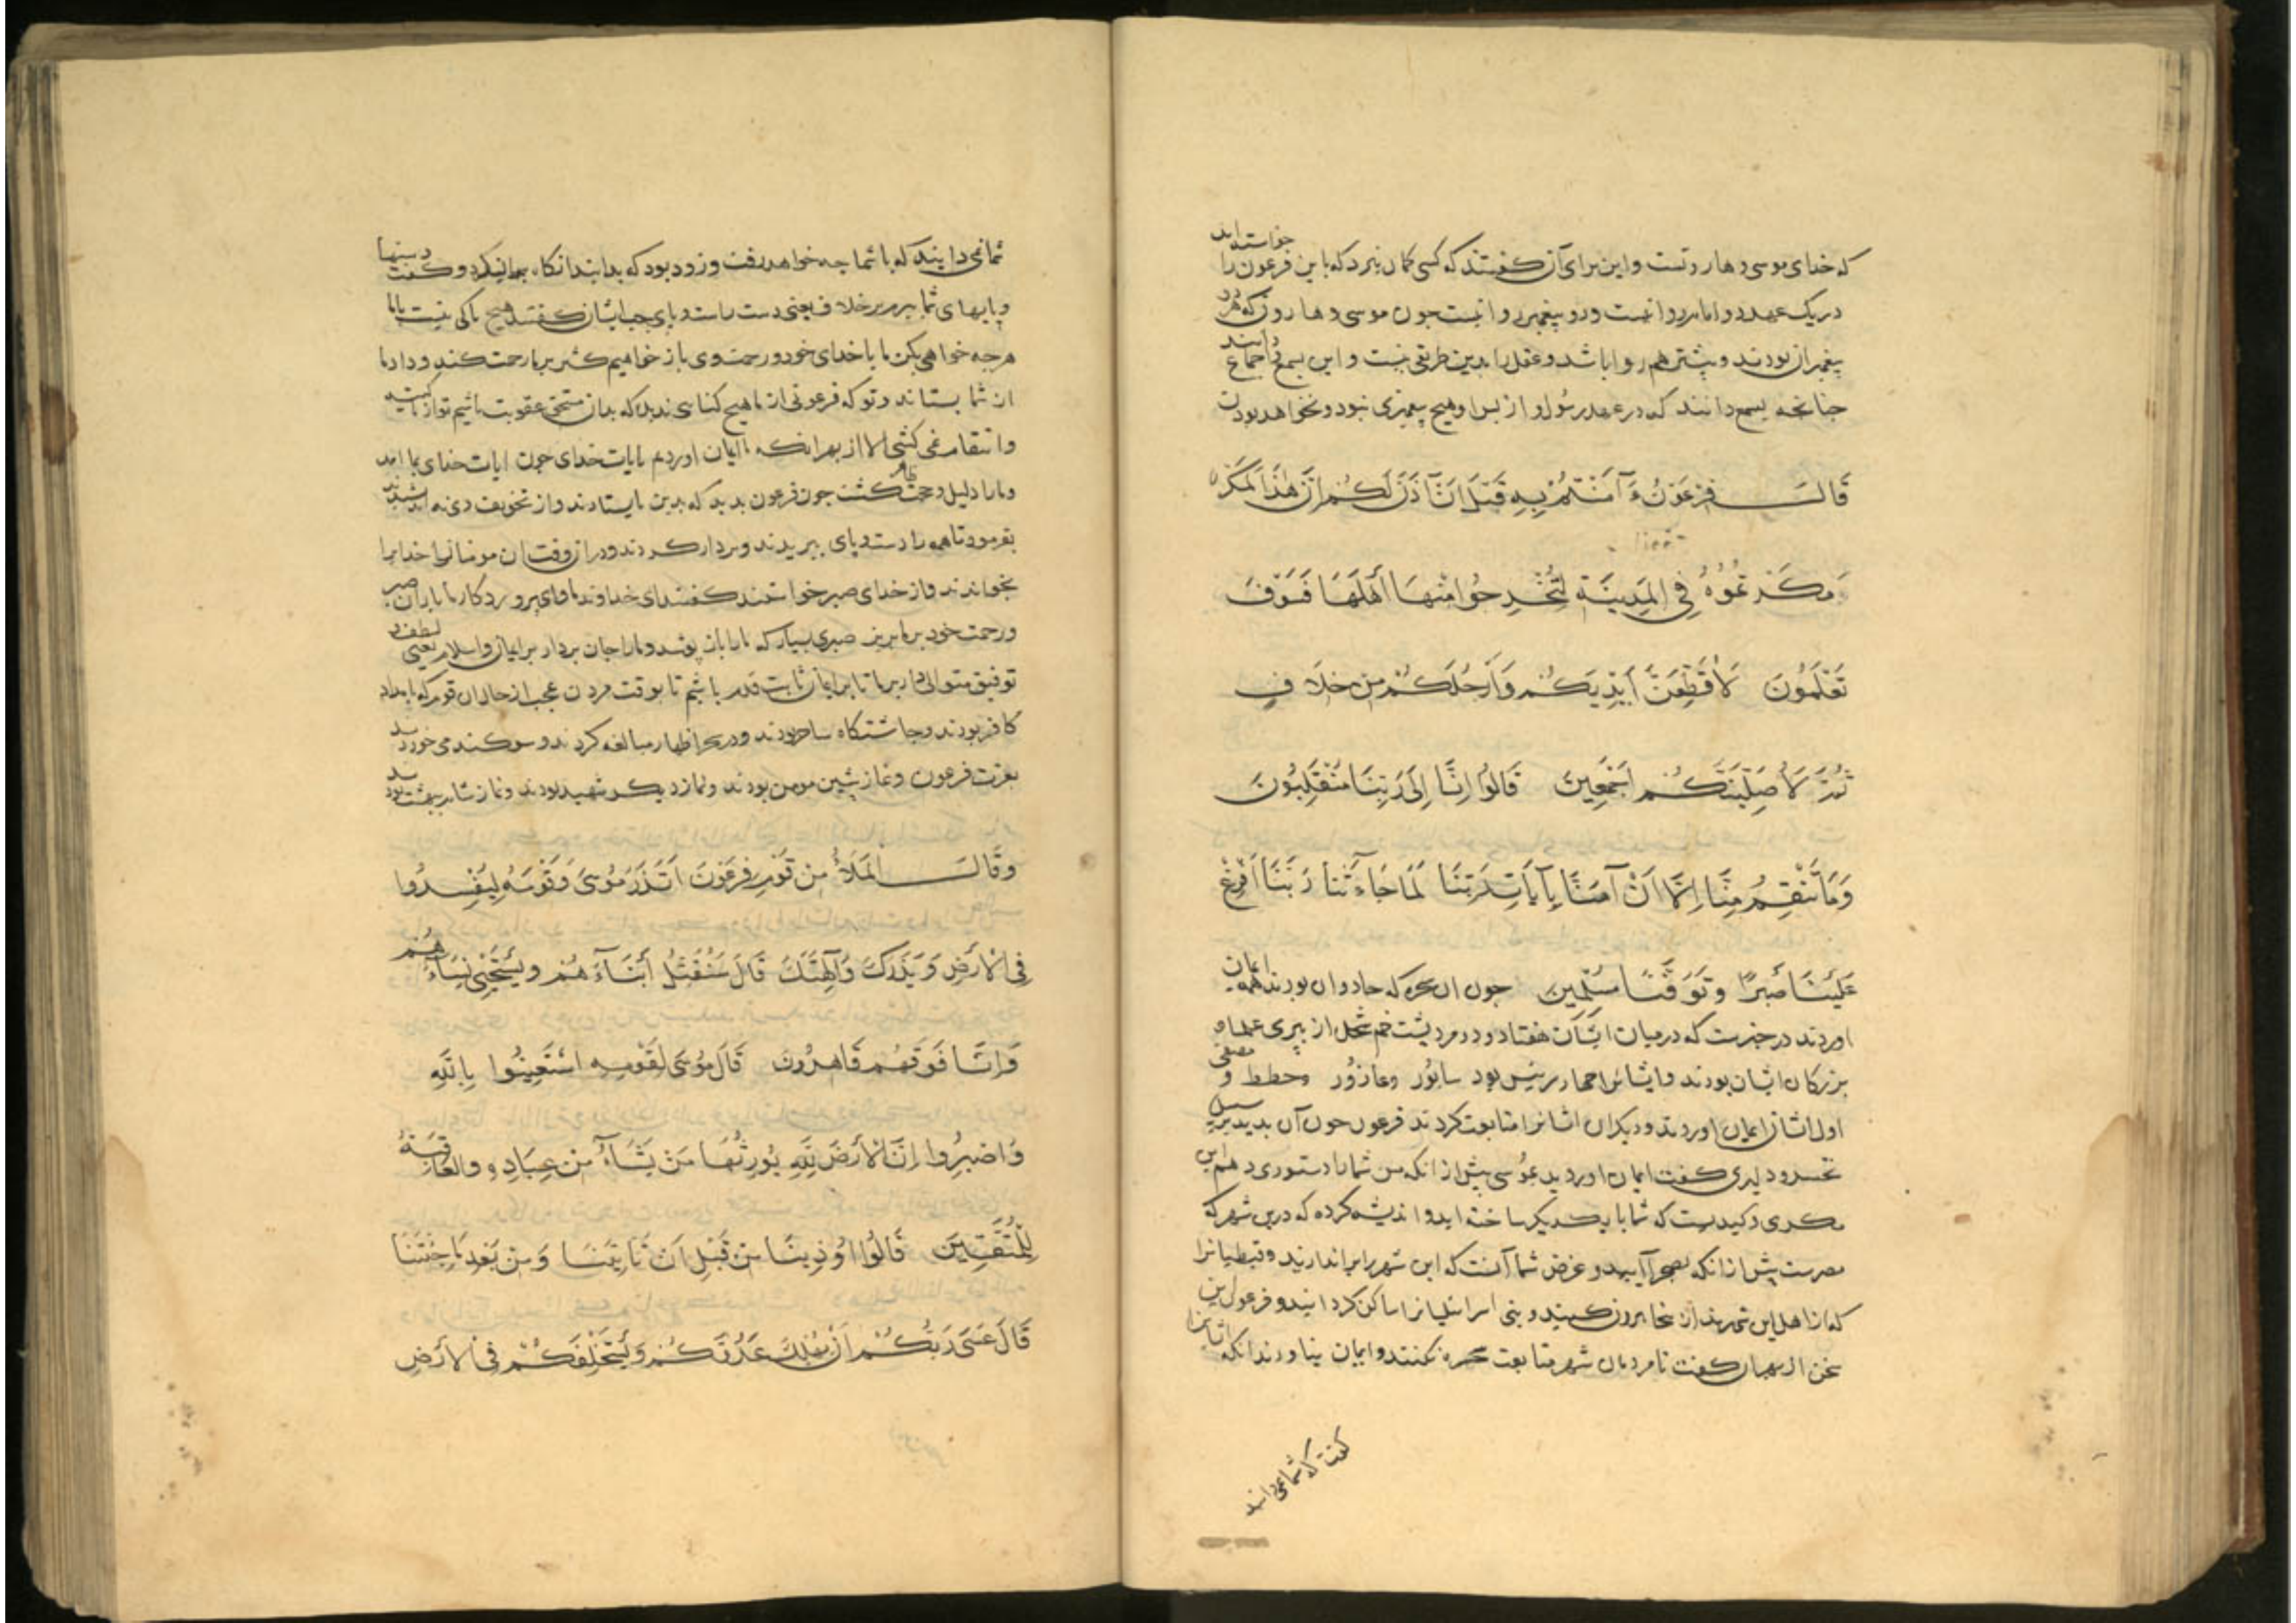 که خدای موسی و هارونست و این برای آن گفتند که کسی کمان نبرد که باین فرعون را خواسته اند
در یک عهد دو امام روا نیست و دو پیغمبر روا نیست چون موسی و هارون که هر دو
پیغمبران بودند و بیشتر هم روا باشد و عقل را بدین طریقی نیست و این بسمع دانند اجماع
چنانچه بسمع دانند که در عهد رسول و از بس او هیچ پیغمبری نبود و نخواهد بودن
قَالَ فِرْعَوْنُ ءَآمَنْتُمْ بِهِ قَبْلَ اَنْ آذَنَ لَكُمْ اِنَّ هٰذَا لَمَكْرٌ
مَكَرْتُمُوُهُ فِي المَدِينَةِ لِتُخْرِجُوا مِنْهَا أَهْلَهَا فَسَوْفَ
تَعْلَمُونَ لَأُقَطِّعَنَّ أَيْدِيَكُمْ وَأَرْجُلَكُمْ مِن خِلَافٍ
ثُمَّ لَأُصَلِّبَنَّكُمْ اَجْمَعِينَ قَالُوا اِنَّا اِلَى رَبِّنَا مُنْقَلِبُونَ
وَمَا تَنْقِمُ مِنَّا اِلَّا اَنْ آمَنَّا بِآيَاتِ رَبِّنَا لَمَّا جَاءَتْنَا رَبَّنَا اَفْرِغْ
عَلَيْنَا صَبْرًا وَتَوَفَّنَا مُسْلِمِينَ چون ان سحره که جادوان بودند همه ایمان
اوردند در خبرست که در میان ایشان هفتاد و دو مرد پشت خم از پیری علما و
بزرکان ایشان بودند و ایشانرا چهار رییس بود سابور و عازور و حطط و مصفی
اول ایشان ایمان اوردند و دیکران ایشانرا متابعت کردند فرعون چون آن بدید بر سبیل
تهدید کفت ایمان اوردید بموسی پیش از انکه من شما را دستوری دهم این
مکری و کیدیست که شما با یکدیکر ساخته اید و اندیشه کرده که درین شهر که
مصرست پیش از انکه بصحرا آیید و غرض شما آنست که این شهر براندازید و قبطیانرا
که از اهل این شهرند از نجا بیرون کنید و بنی اسرائیلیانرا ساکن کردانید و فرعون این
سخن از بهر ان کفت تا مردمان شهر متابعت سحره نکنند و ایمان نیاورند انکه ایشانرا
کفت که شما نمی دانید
شما نمی دانید که با شما چه خواهد رفت و زود بود که بدانید انکاه بیان کرد و کفت دستها
و پایهای شما ببرم بر خلاف یعنی دست راست و پای چپ ایشان کفتند هیچ باکی نیست با ما
هرچه خواهی بکن ما با خدای خود و رحمت وی باز خواهیم کشتن بر ما رحمت کند و داد ما
از شما بستاند و تو که فرعونی از ما هیچ کناهی ندیدی که بدان مستحق عقوبت باشیم تو از ما کینه
و انتقام نمی کشی الا از بهر انکه ما ایمان اوردیم بایات خدای چون ایات خدای بما امد
و ما را دلیل و حجت ظاهر کشت چون فرعون بدید که بدین بایستادند و از تخویف وی نه اندیشیدند
بفرمود تا همه را دست و پای ببریدند و بردار کردند و دران وقت ان مومنان مر خدایرا
بخواندند و از خدای صبر خواستند کفتند ای خداوند ما و ای پروردکار ما باران صبر
و رحمت خود بر ما بریز صبری بسیار که ما را باز پوشد و ما را جان بردار بر ایمان و اسلام یعنی لطف و
توفیق متوالی دار بر ما تا بر ایمان ثابت قدم باشیم تا بوقت مردن عجب از حال ان قوم که بامداد
کافر بودند و چاشتکاه ساحر بودند و در سحر اظهار مبالغه کردند و سوکند می خوردند
بعزت فرعون و نماز پیشین مومن بودند و نماز دیکر شهید بودند و نماز شام ببهشت بودند
وَقَالَ الْمَلَأُ مِن قَوْمِ فِرْعَوْنَ اَتَذَرُ مُوسَى وَقَوْمَهُ لِيُفْسِدُوا
فِي الْأَرْضِ وَيَذَرَكَ وَآلِهَتَكَ قَالَ سَنُقَتِّلُ أَبْنَاءَهُمْ وَيَسْتَحْيِي نِسَاءَهُمْ
وَاِنَّا فَوْقَهُمْ قَاهِرُونَ قَالَ مُوسَى لِقَوْمِهِ اسْتَعِينُوا بِاللَّهِ
وَاصْبِرُوا اِنَّ الْأَرْضَ لِلَّهِ يُورِثُهَا مَنْ يَشَاءُ مِنْ عِبَادِهِ وَالعَاقِبَةُ
لِلْمُتَّقِينَ قَالُوا اُوذِينَا مِنْ قَبْلِ اَنْ تَأْتِيَنَا وَمِنْ بَعْدِ مَا جِئْتَنَا
قَالَ عَسَى رَبُّكُمْ اَنْ يُهْلِكَ عَدُوَّكُمْ وَيَسْتَخْلِفَكُمْ فِي الْأَرْضِ